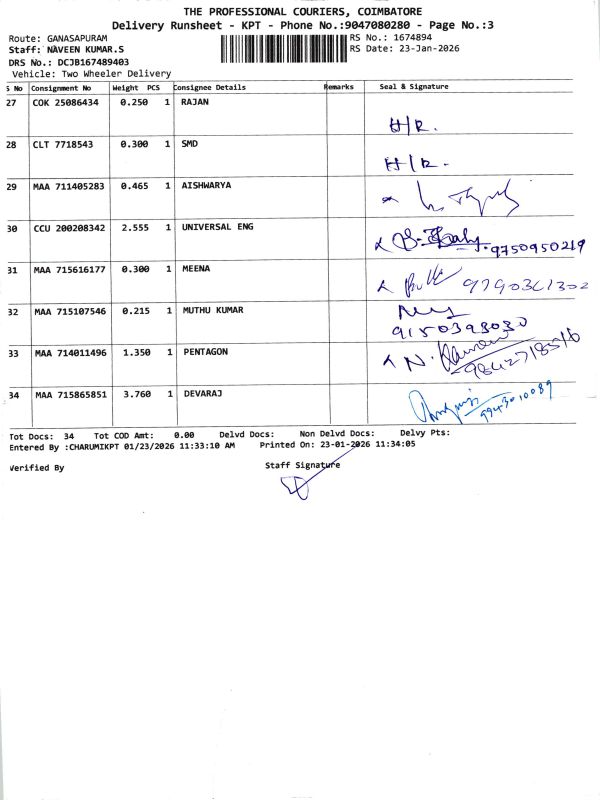 THE PROFESSIONAL COURIERS, COIMBATORE
Delivery Runsheet - KPT - Phone No.:9047080280 - Page No.:3
Route: GANASAPURAM
RS No.: 1674894
Staff: NAVEEN KUMAR.S
RS Date: 23-Jan-2026
DRS No.: DCJB167489403
Vehicle: Two Wheeler Delivery
S No Consignment No Weight PCS Consignee Details Remarks Seal & Signature
27 COK 25086434 0.250 1 RAJAN
H/R.
28 CLT 7718543 0.300 1 SMD
H/R.
29 MAA 711405283 0.465 1 AISHWARYA
30 CCU 200208342 2.555 1 UNIVERSAL ENG
9750950219
31 MAA 715616177 0.300 1 MEENA
32 MAA 715107546 0.215 1 MUTHU KUMAR
9150393030
33 MAA 714011496 1.350 1 PENTAGON
34 MAA 715865851 3.760 1 DEVARAJ
9943010089
Tot Docs: 34 Tot COD Amt: 0.00 Delvd Docs: Non Delvd Docs: Delvy Pts:
Entered By :CHARUMIKPT 01/23/2026 11:33:10 AM Printed On: 23-01-2026 11:34:05
Verified By Staff Signature